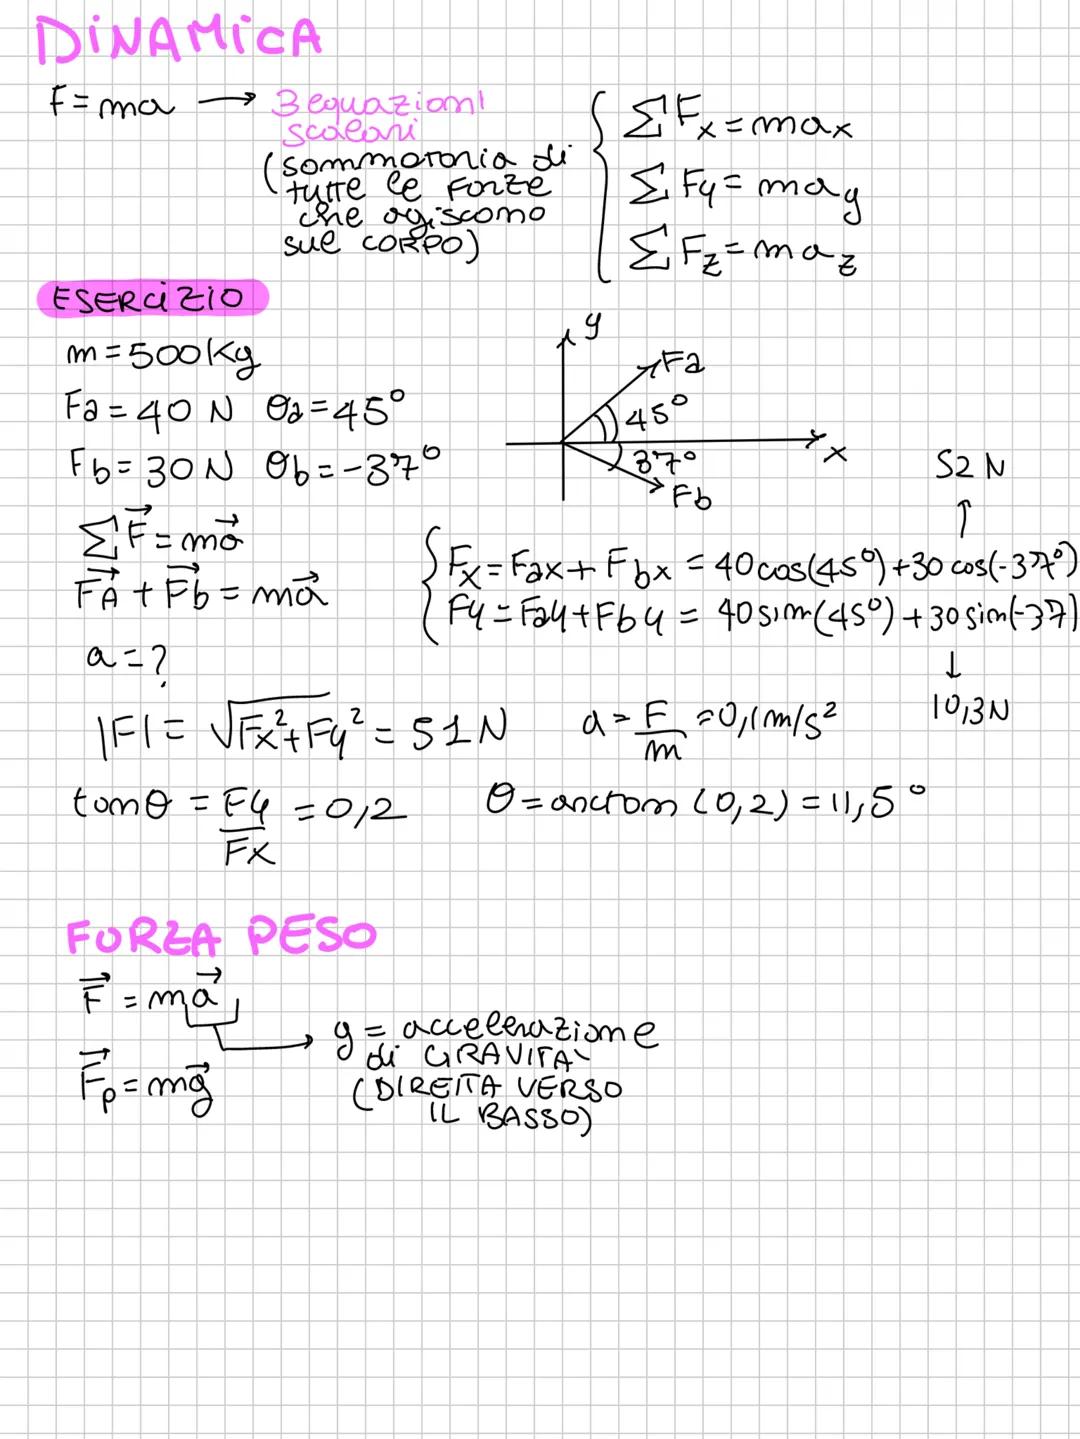 DINAMICA
F = ma → 3 equazioni scalari
(sommatoria di tutte le forze che agiscono sul CORPO)
∑Fx = max
∑Fy = may
∑Fz = maz
ESERCIZIO
m = 500 Kg
Fa = 40 N θa = 45°
Fb = 30 N θb = -37°
y
Fa
45°
x
37°
Fb
∑F⃗ = ma⃗
F⃗A + F⃗b = ma⃗
a = ?
52 N
Fx = Fax + Fbx = 40 cos(45°) + 30 cos(-37°)
Fy = Fay + Fby = 40 sin(45°) + 30 sin(-37)
10,3 N
|F| = √Fx² + Fy² = 51 N a = F/m = 0,1 m/s²
tanθ = Fy/Fx = 0,2 θ = arctan (0,2) = 11,5°
FORZA PESO
F⃗ = ma⃗
g = accelerazione
di GRAVITA`
(DIRETTA VERSO
IL BASSO)
F⃗p = mg⃗